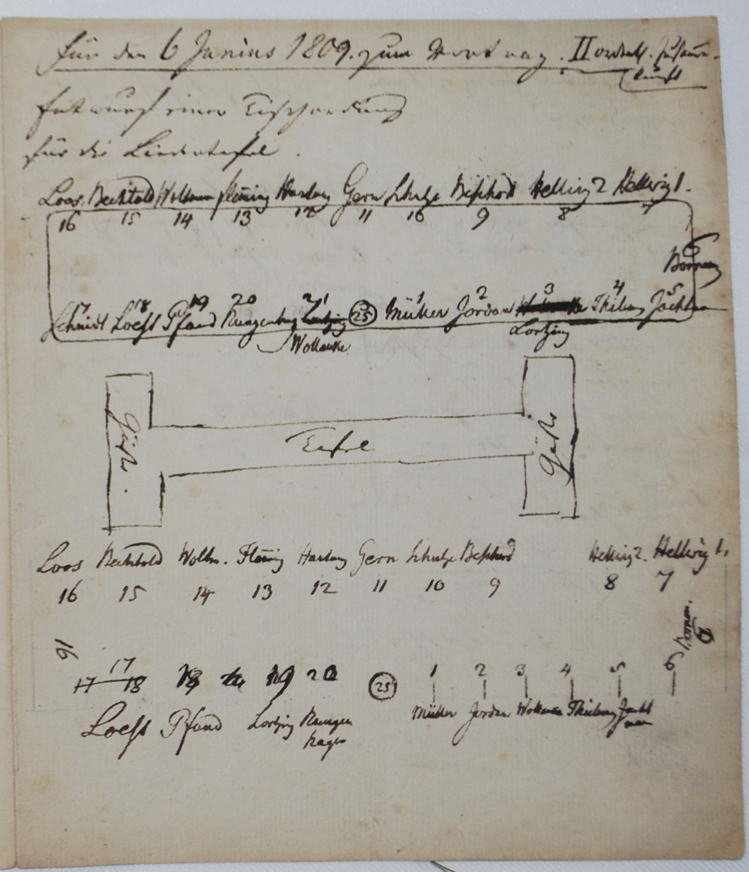 Für den 6 Junius 1809. zum Vortrag. II ordentl. Zusammenkunft
Entwurf einer Tischordnung
für die Liedertafel.
Loos. Bechtold Wollmn Fleming Hartung Gern Schulze Beschord Hellwig 2 Hellwig 1.
16 15 14 13 12 11 10 9 8 7
6
17 18 19 20 21 1 2 3 4 5
Schmidt Loest Pfund Rungenhag Lortzing (25) Müller Jordan Thilem
Wollanke Lortzing
Gäste. Tafel Gäste
Loos Bechtold Wollm. Fleming Hartung Gern Schulze Beschord Hellwig 2. Hellwig 1.
16 15 14 13 12 11 10 9 8 7
16 17
17 18 18 19 20 (25) 1 2 3 4 5 6
Loest Pfund Lortzing Rungenhagen Müller Jordan